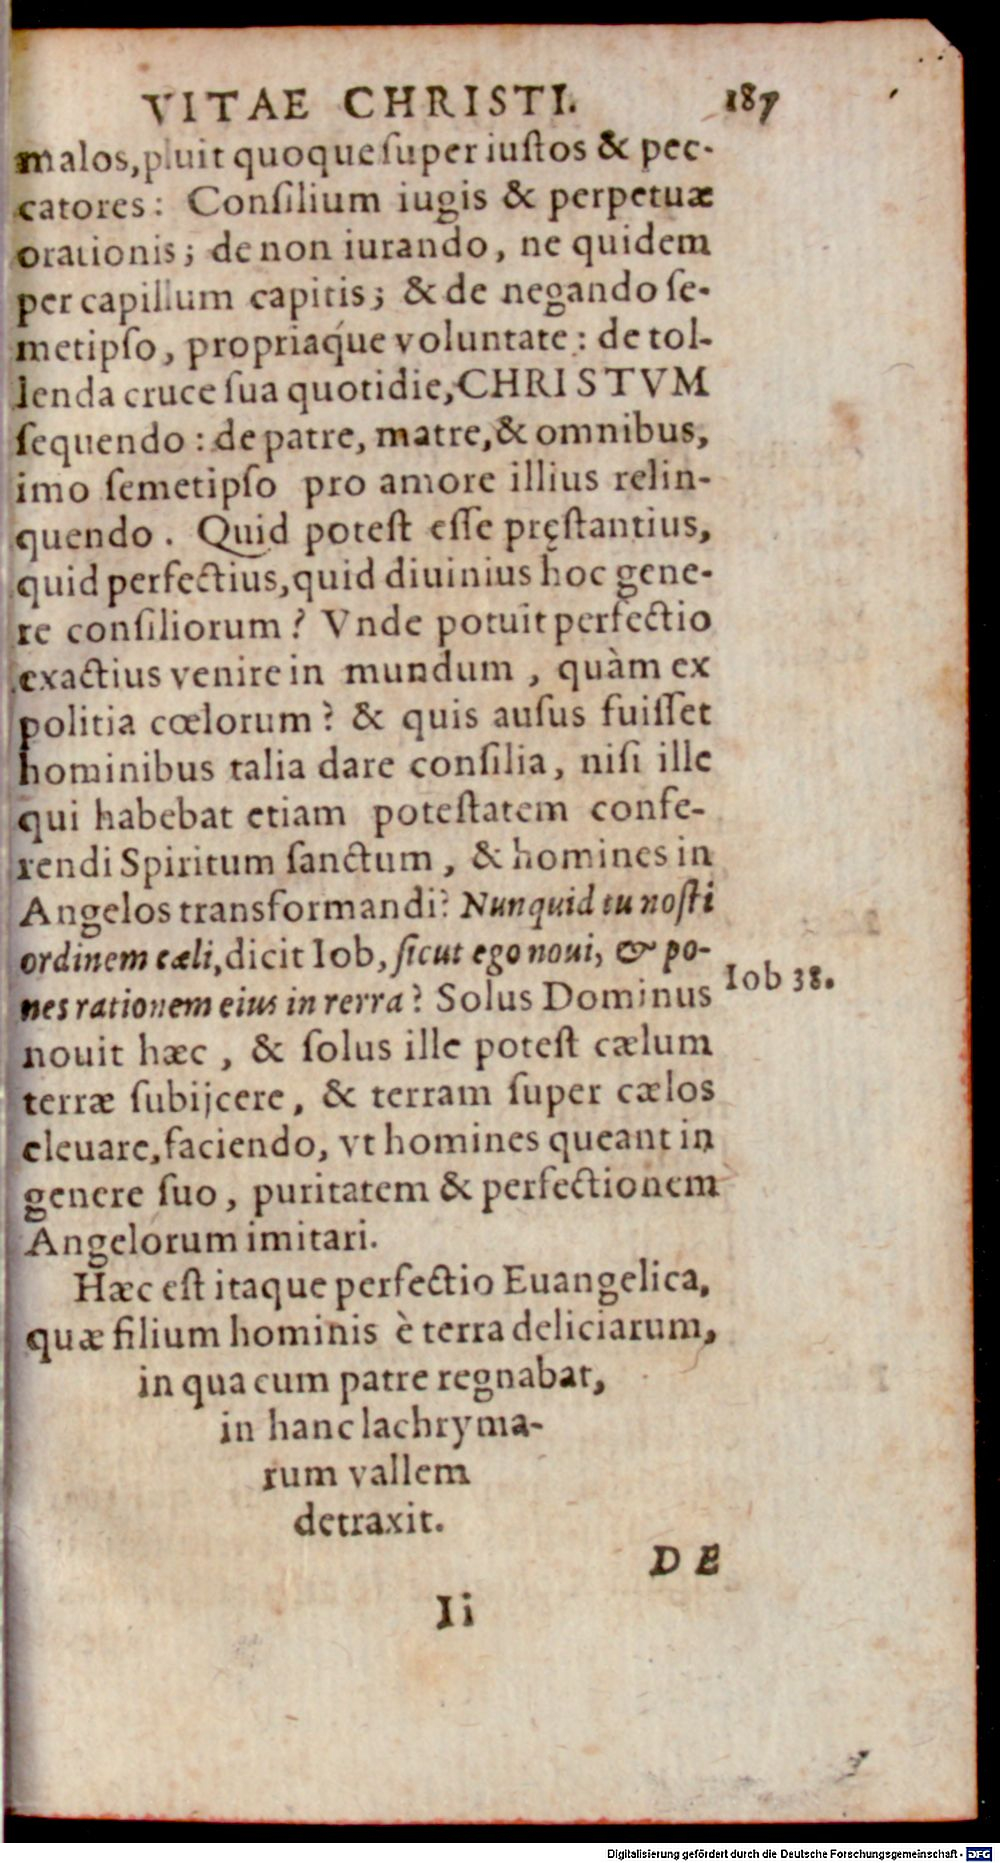 VITAE CHRISTI. 187
malos, pluit quoque super iustos & pec-
catores: Consilium iugis & perpetuæ
orationis; de non iurando, ne quidem
per capillum capitis; & de negando se-
metipso, propriaq́ue voluntate: de tol-
lenda cruce sua quotidie, CHRISTVM
sequendo: de patre, matre, & omnibus,
imo semetipso pro amore illius relin-
quendo. Quid potest esse pręstantius,
quid perfectius, quid diuinius hoc gene-
re consiliorum? Vnde potuit perfectio
exactius venire in mundum, quàm ex
politia cœlorum? & quis ausus fuisset
hominibus talia dare consilia, nisi ille
qui habebat etiam potestatem confe-
rendi Spiritum sanctum, & homines in
Angelos transformandi? Nunquid tu nosti
ordinem cæli, dicit Iob, sicut ego noui, & po-
nes rationem eius in rerra? Solus Dominus
Iob 38.
nouit hæc, & solus ille potest cælum
terræ subijcere, & terram super cælos
eleuare, faciendo, vt homines queant in
genere suo, puritatem & perfectionem
Angelorum imitari.
Hæc est itaque perfectio Euangelica,
quæ filium hominis è terra deliciarum,
in qua cum patre regnabat,
in hanc lachryma-
rum vallem
detraxit.
DE
Ii
Digitalisierung gefördert durch die Deutsche Forschungsgemeinschaft - DFG